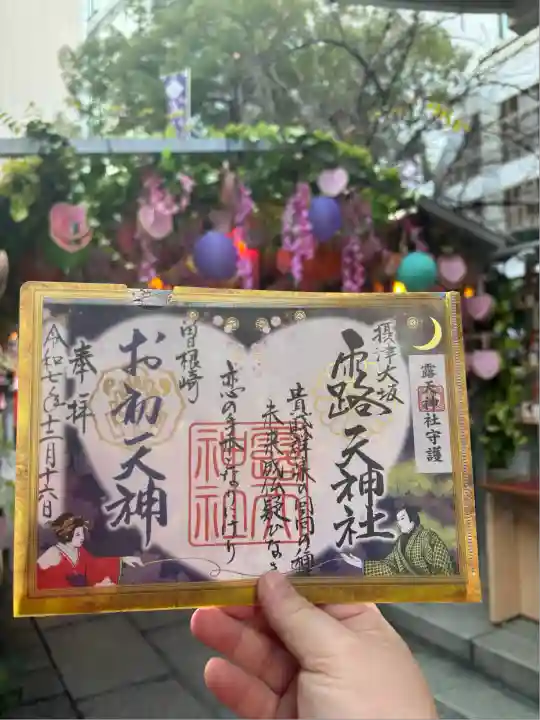 露天神社守護
摂津大坂
露天神社
貴賤群集の回向の種
未来成仏疑ひなき
恋の手本なりけり
曽根崎
お初天神
奉拝
令和七年十二月十六日